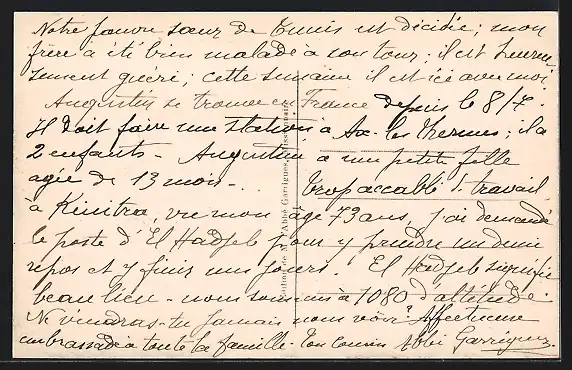 Notre pauvre sœur de Tunis est décidée ; mon
frère a été bien malade à son tour ; il est heureu-
sement guéri ; cette semaine il est ici avec moi.
Augustin se trouve en France depuis le 8/7.
Il doit faire une station à Ax-les-Thermes ; il a
2 enfants - Augustin a une petite fille
agée de 13 mois -
Trop accablé de travail
à Kénitra, vu mon âge 73 ans, j'ai demandé
le poste d'El Hadjeb pour y prendre un demi
repos et y finir mes jours. El Hadjeb signifie
beau lieu - nous sommes à 1080 d'altitude.
Ne viendras-tu jamais nous voir ? Affectueuse
embrassade à toute la famille - Ton cousin Abbé Garrigues.
Edition de M. l'Abbé Garrigues, Missionnaire